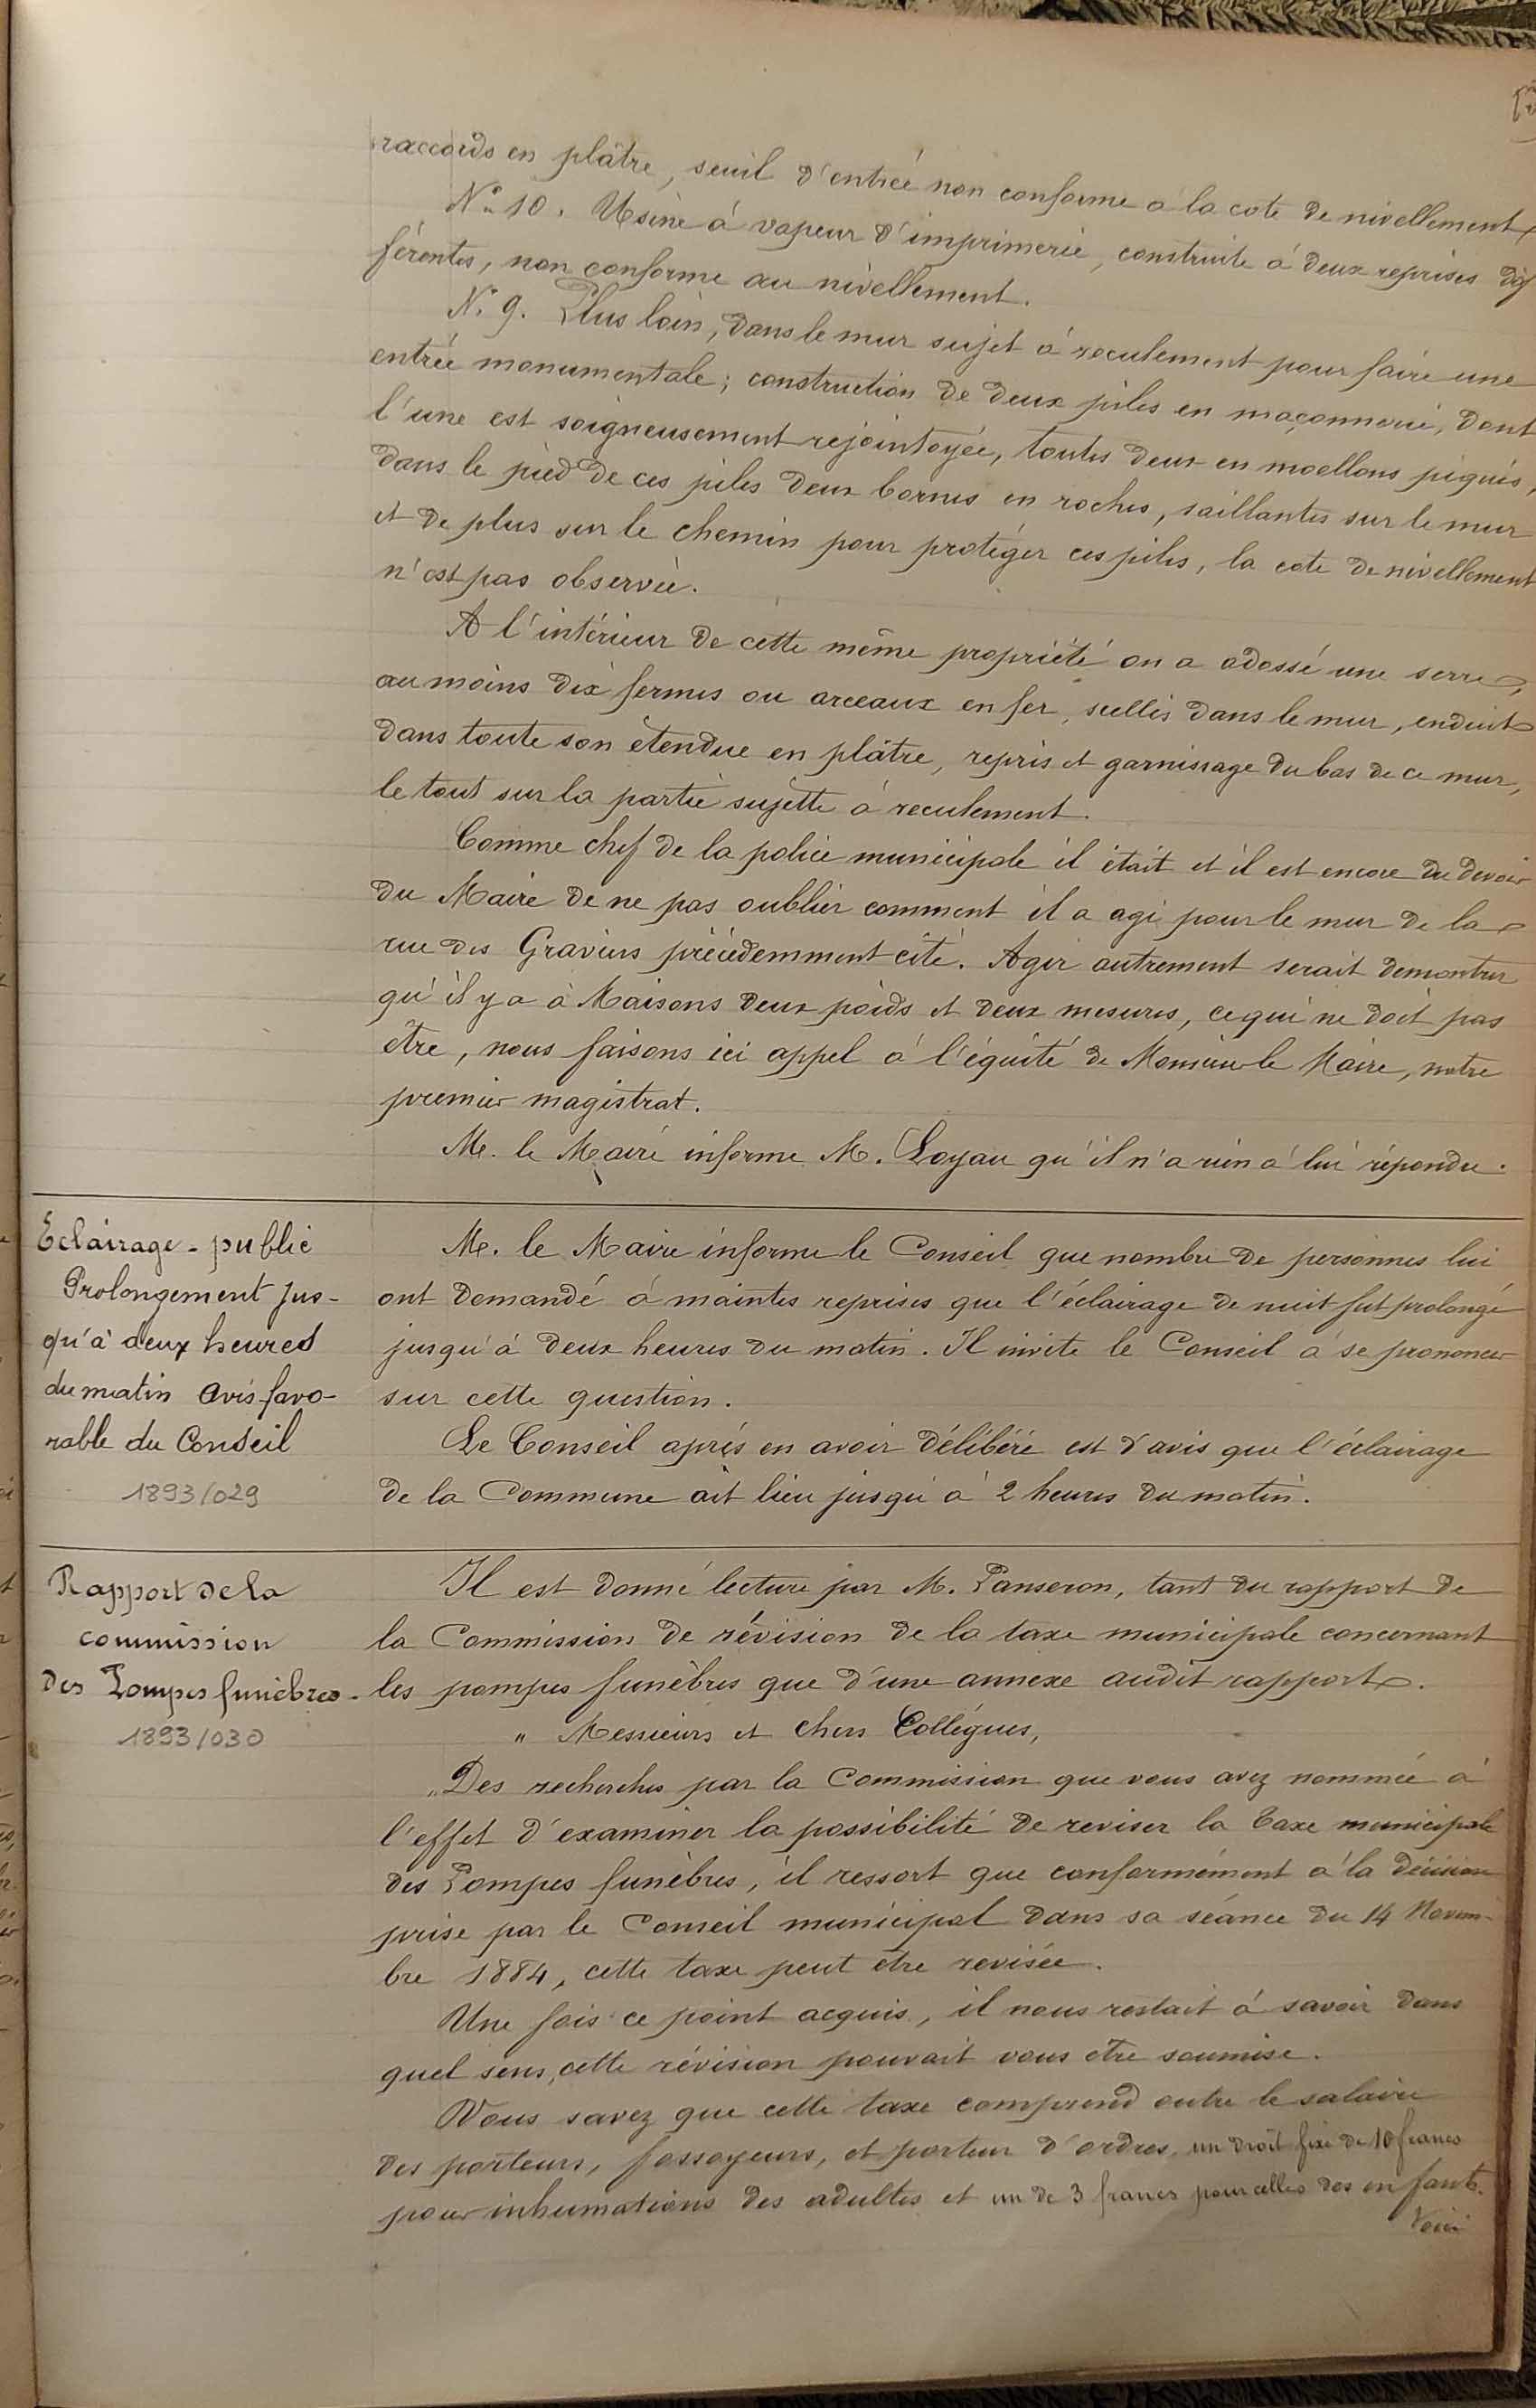 raccords en plâtre, seuil d'entrée non conforme à la cote de nivellement
N° 10. Usine à vapeur d'imprimerie, construite à deux reprises dif
férentes, non conforme au nivellement.
N° 9. Plus loin, dans le mur sujet à reculement pour faire une
entrée monumentale; construction de deux piles en maçonnerie, dont
l'une est soigneusement rejointoyée, toutes deux en moellons piqués,
dans le pied de ces piles deux bornes en roches, saillantes sur le mur
et de plus sur le chemin pour protéger ces piles, la cote de nivellement
n'est pas observée.
A l'intérieur de cette même propriété on a adossé une serre,
au moins dix fermes ou arceaux en fer, scellés dans le mur, enduit
dans toute son étendue en plâtre, repris et garnissage du bas de ce mur,
le tout sur la partie sujette à reculement.
Comme chef de la police municipale il était et il est encore du devoir
du Maire de ne pas oublier comment il a agi pour le mur de la
rue des Graviers précédemment cité. Agir autrement serait démontrer
qu'il y a à Maisons deux poids et deux mesures, ce qui ne doit pas
être, nous faisons ici appel à l'équité de Monsieur le Maire, notre
premier magistrat.
M. le Maire informe M. Loyau qu'il n'a rien à lui répondre.
Eclairage - public
Prolongement jus-
qu'à deux heures
du matin avis favo-
rable du Conseil
1893/029
M. le Maire informe le Conseil que nombre de personnes lui
ont demandé à maintes reprises que l'éclairage de nuit fut prolongé
jusqu'à deux heures du matin. Il invite le Conseil à se prononcer
sur cette question.
Le Conseil après en avoir délibéré est d'avis que l'éclairage
de la Commune ait lieu jusqu'à 2 heures du matin.
Rapport de la
commission
des Pompes funèbres.
1893/030
Il est donné lecture par M. Panseron, tant du rapport de
la Commission de révision de la taxe municipale concernant
les pompes funèbres que d'une annexe audit rapport.
" Messieurs et chers Collègues,
"Des recherches par la Commission que vous avez nommée à
l'effet d'examiner la possibilité de reviser la taxe municipale
des Pompes funèbres, il ressort que conformément à la décision
prise par le Conseil municipal dans sa séance du 14 Novem-
bre 1884, cette taxe peut être revisée.
Une fois ce point acquis, il nous restait à savoir dans
quel sens, cette révision pouvait vous être soumise.
Vous savez que cette taxe comprend outre le salaire
des porteurs, fossoyeurs, et porteur d'ordres, un droit fixe de 10 francs
pour inhumations des adultes et un de 3 francs pour celles des enfants.
Voici